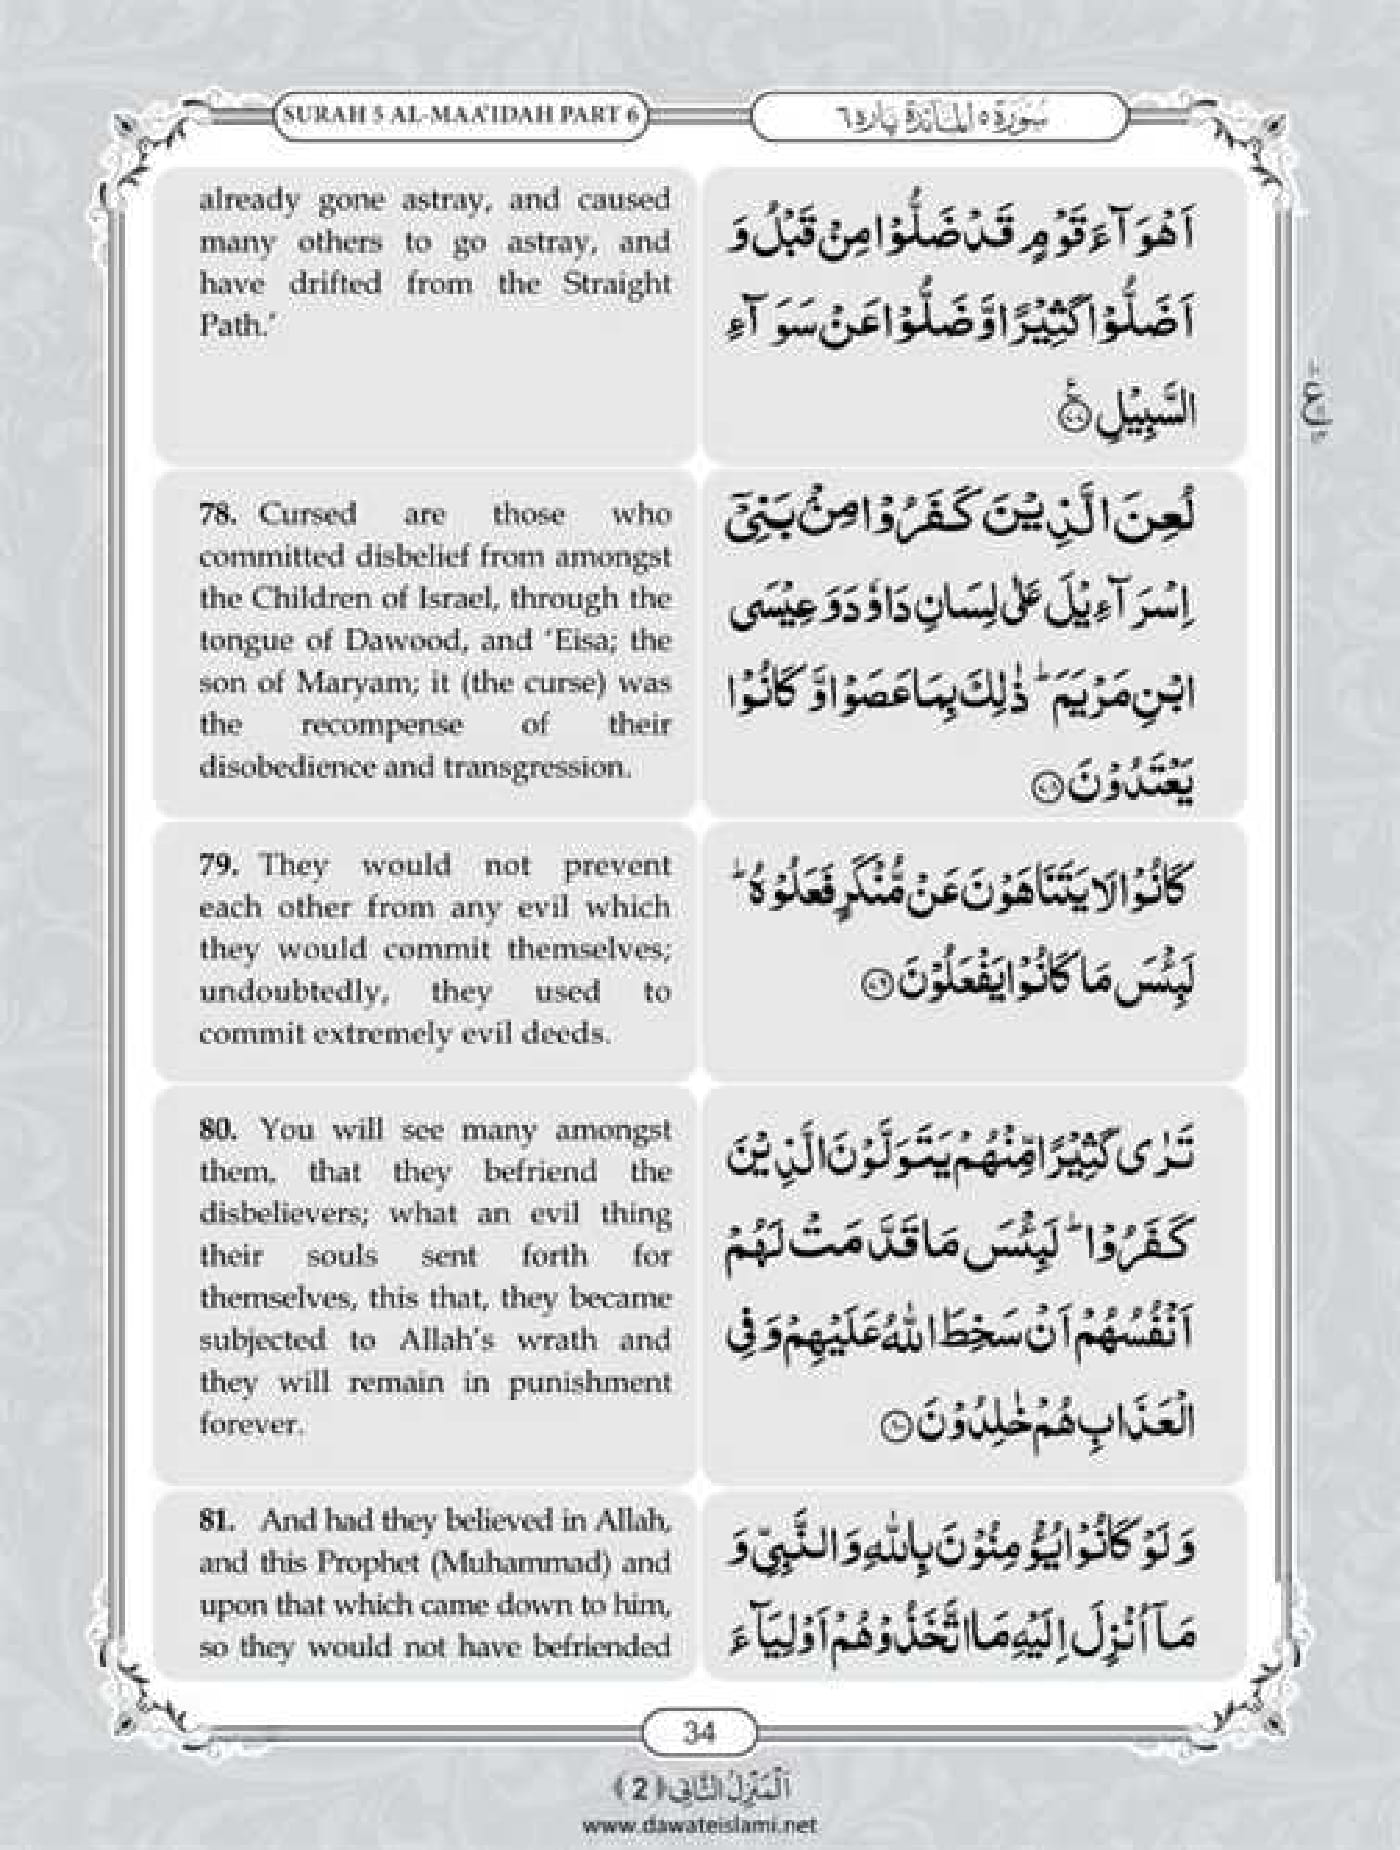 SURAH 5 AL-MAA'IDAH PART 6
سُوْرَة ٥ الْمَآئِدَة پاره ٦
already gone astray, and caused
many others to go astray, and
have drifted from the Straight
Path.’
اَهْوَآءَ قَوْمٍ قَدْ ضَلُّوْا مِنْ قَبْلُ وَ
اَضَلُّوْا كَثِيْرًا وَّ ضَلُّوْا عَنْ سَوَآءِ
السَّبِيْلِ
78. Cursed are those who
committed disbelief from amongst
the Children of Israel, through the
tongue of Dawood, and ‘Eisa; the
son of Maryam; it (the curse) was
the recompense of their
disobedience and transgression.
لُعِنَ الَّذِيْنَ كَفَرُوْا مِنْۢ بَنِیْۤ
اِسْرَآءِيْلَ عَلٰى لِسَانِ دَاوٗدَ وَ عِيْسَى
ابْنِ مَرْيَمَ ؕ ذٰلِكَ بِمَا عَصَوْا وَّ كَانُوْا
يَعْتَدُوْنَ ﴿٧٨﴾
79. They would not prevent
each other from any evil which
they would commit themselves;
undoubtedly, they used to
commit extremely evil deeds.
كَانُوْا لَا يَتَنَاهَوْنَ عَنْ مُّنْكَرٍ فَعَلُوْهُ ؕ
لَبِئْسَ مَا كَانُوْا يَفْعَلُوْنَ ﴿٧٩﴾
80. You will see many amongst
them, that they befriend the
disbelievers; what an evil thing
their souls sent forth for
themselves, this that, they became
subjected to Allah’s wrath and
they will remain in punishment
forever.
تَرٰى كَثِيْرًا مِّنْهُمْ يَتَوَلَّوْنَ الَّذِيْنَ
كَفَرُوْا ؕ لَبِئْسَ مَا قَدَّمَتْ لَهُمْ
اَنْفُسُهُمْ اَنْ سَخِطَ اللّٰهُ عَلَيْهِمْ وَ فِی
الْعَذَابِ هُمْ خٰلِدُوْنَ ﴿٨٠﴾
81. And had they believed in Allah,
and this Prophet (Muhammad) and
upon that which came down to him,
so they would not have befriended
وَ لَوْ كَانُوْا يُؤْمِنُوْنَ بِاللّٰهِ وَ النَّبِیِّ وَ
مَاۤ اُنْزِلَ اِلَيْهِ مَا اتَّخَذُوْهُمْ اَوْلِيَآءَ
34
اَلْمَنْزِلُ الثَّانِی ﴿2﴾
www.dawateislami.net